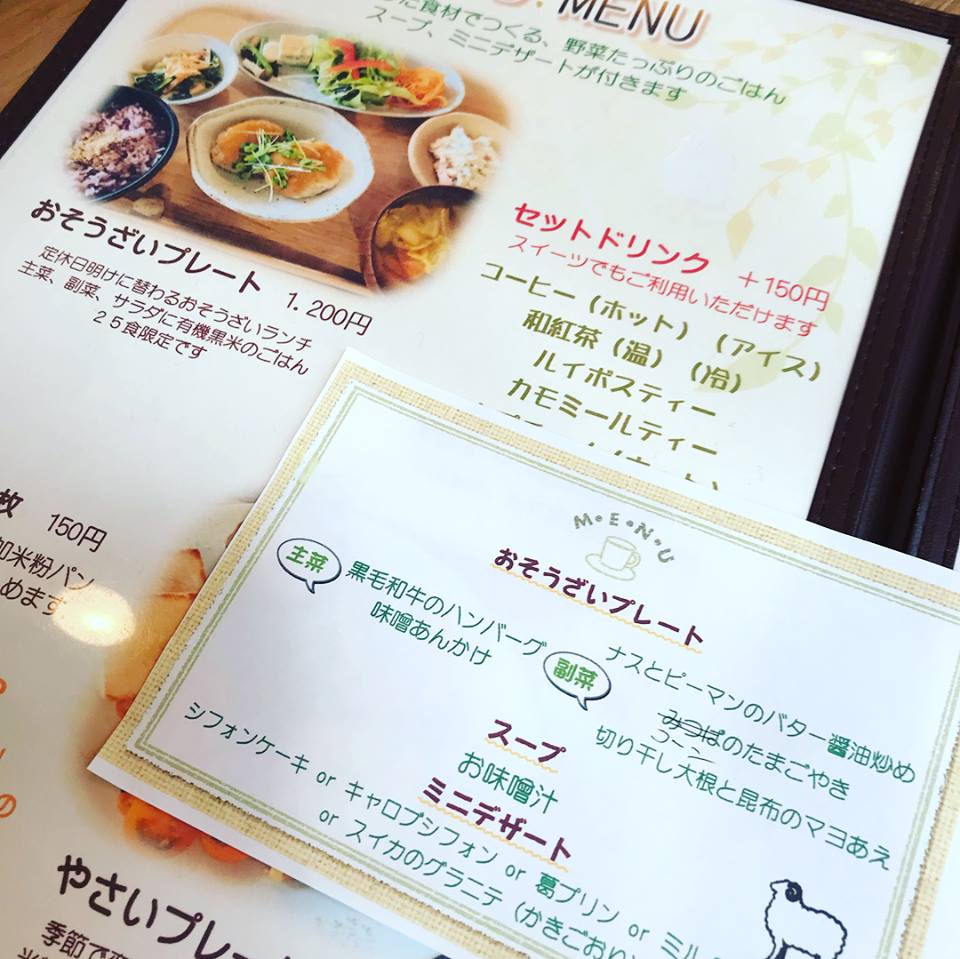 MENU
食材でつくる、野菜たっぷりのごはん
スープ、ミニデザートが付きます
おそうざいプレート 1.200円
定休日明けに替わるおそうざいランチ
主菜、副菜、サラダに有機黒米のごはん
25食限定です
セットドリンク +150円
スイーツでもご利用いただけます
コーヒー(ホット) (アイス)
和紅茶(温) (冷)
ルイボスティー
カモミールティー
枚 150円
加米粉パン
めます
の
やさいプレー
季節で
M・E・N・U
おそうざいプレート
主菜
黒毛和牛のハンバーグ
味噌あんかけ
副菜
ナスとピーマンのバター醤油炒め
みつばのたまごやき
コーン
切り干し大根と昆布のマヨあえ
スープ
お味噌汁
ミニデザート
シフォンケーキ or キャロブシフォン or 葛プリン or ミル
or スイカのグラニテ(かきごおり